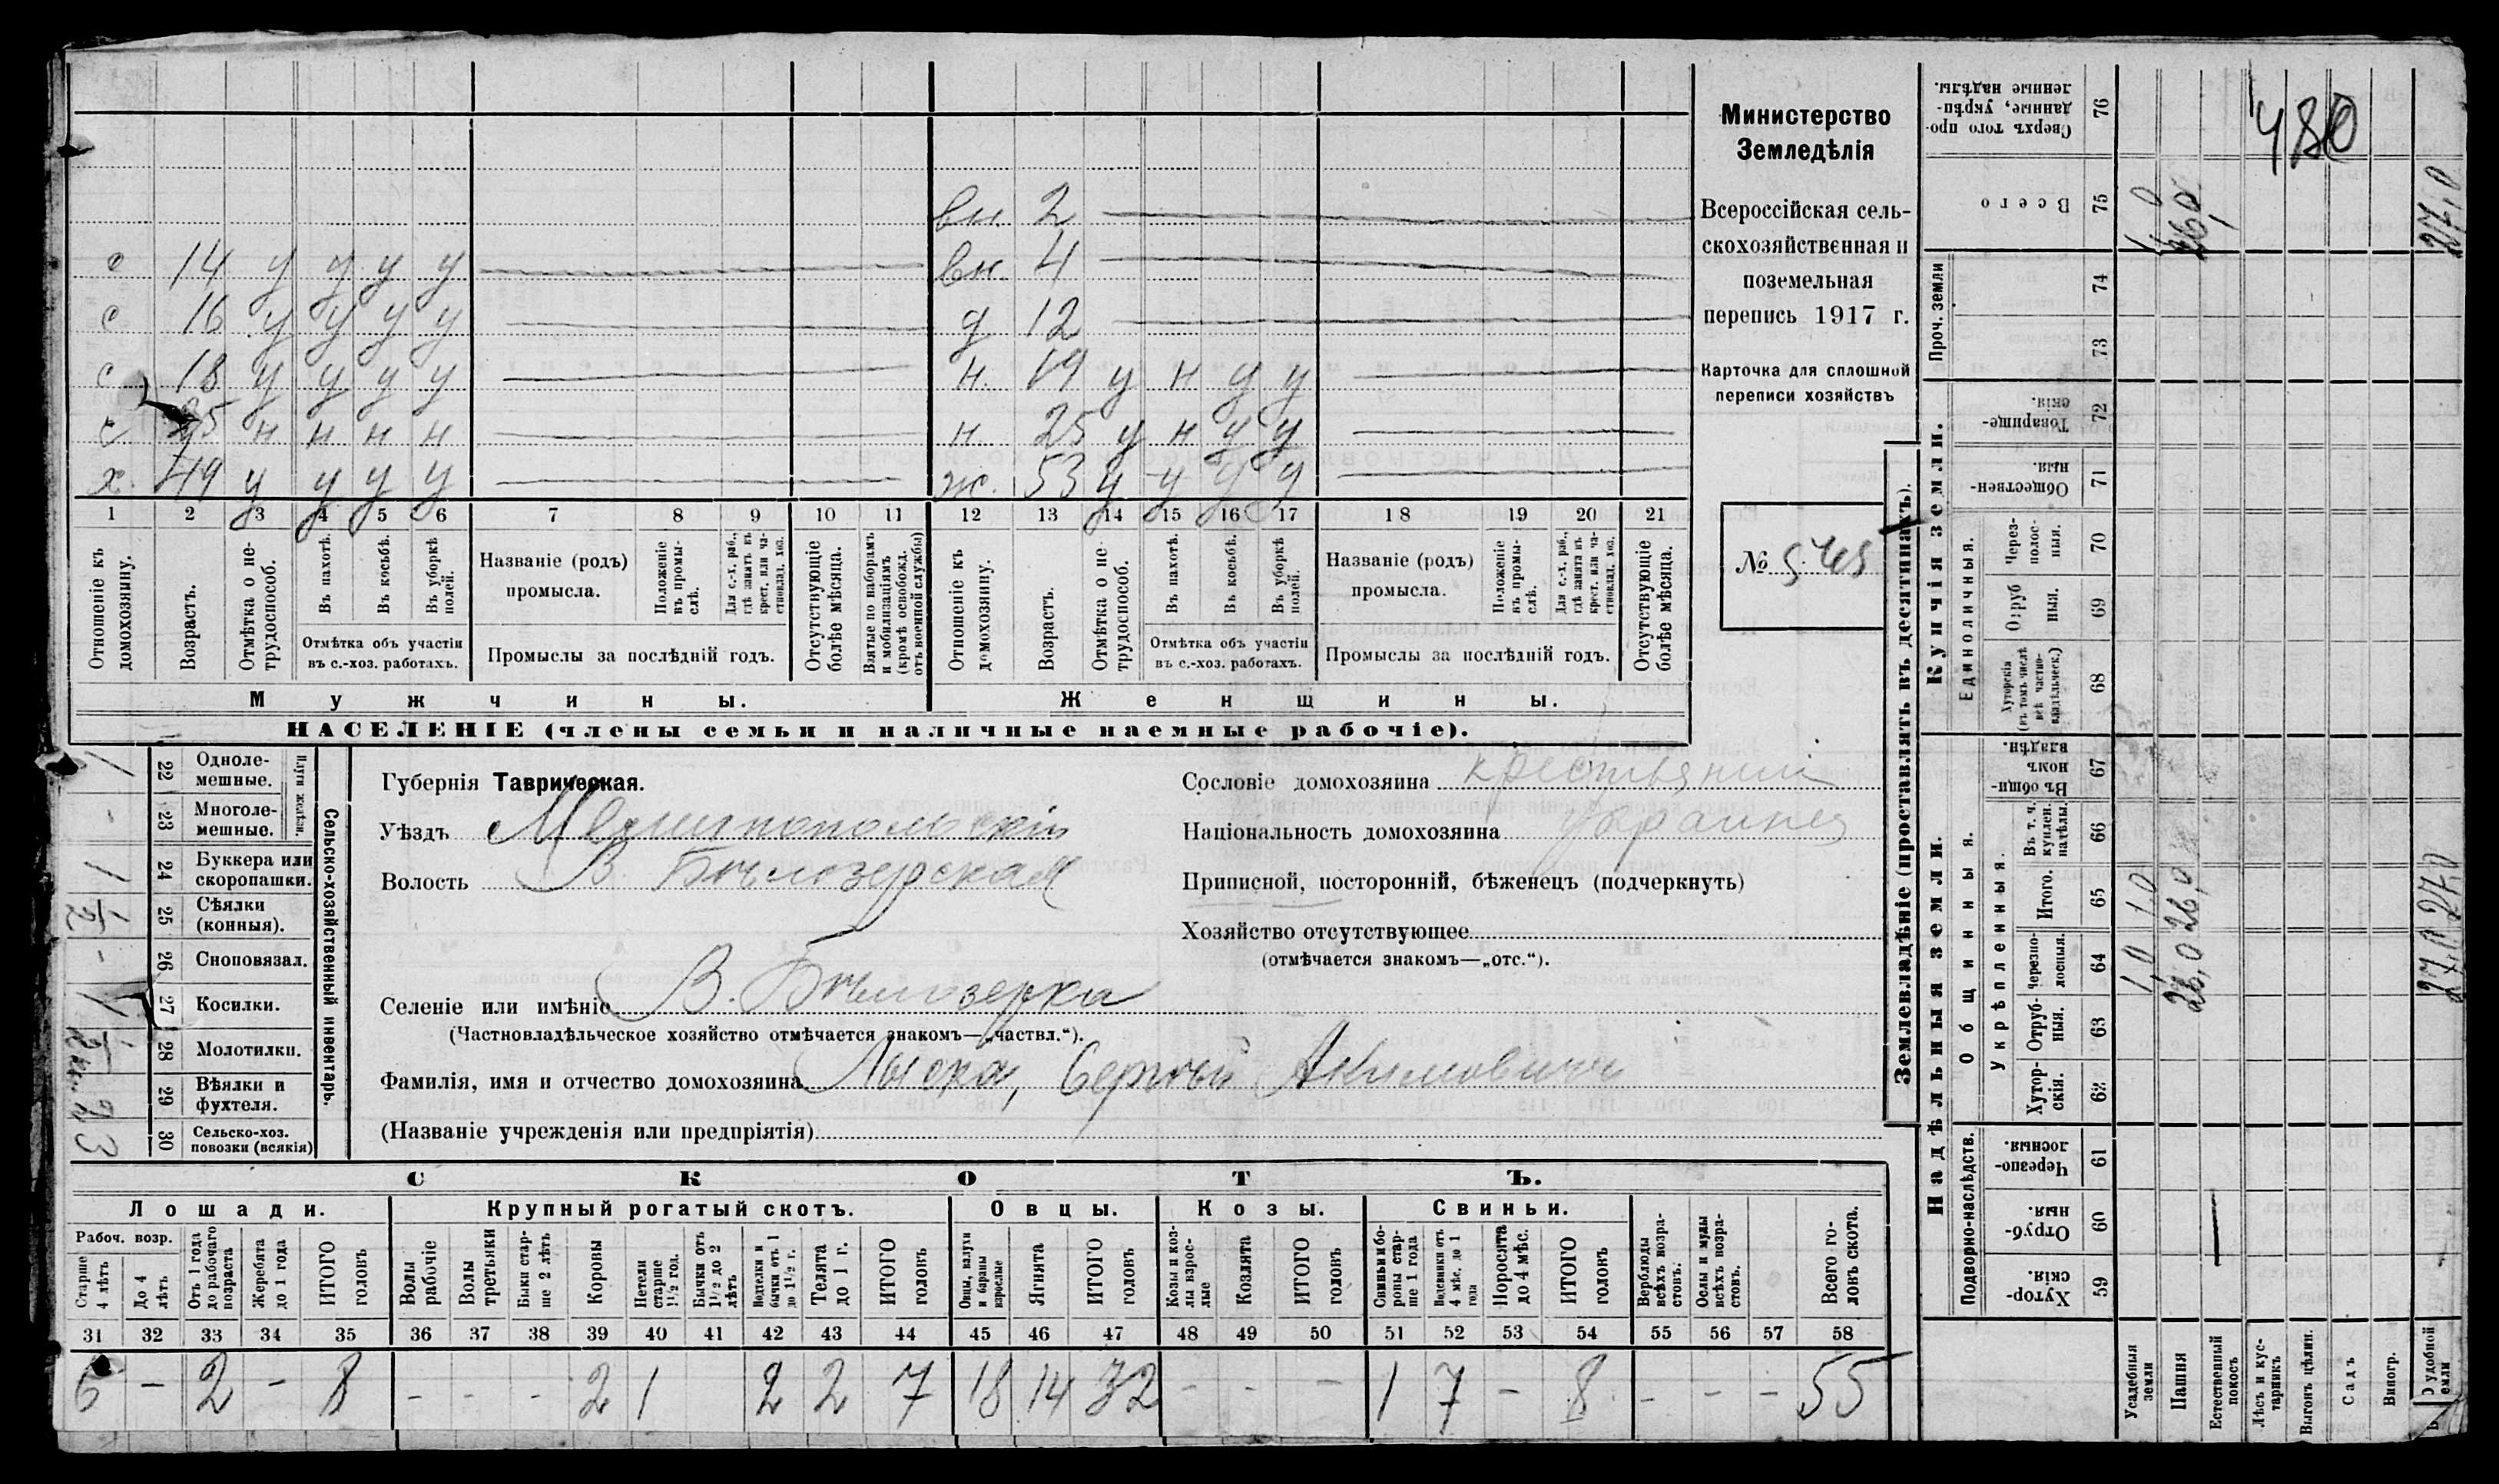 Министерство
Земледѣлія
Всероссійская сель-
скохозяйственная и
поземельная
перепись 1917 г.
Карточка для сплошной
переписи хозяйствъ
№
480
вн. 2
с 14 у у у у вн. 4
с 16 у у у у д 12
с 18 у у у у н. 19 у н у у
с 25 н н н н н. 25 у н у у
х. 49 у у у у ж. 53 у у у у
1 2 3 4 5 6 7 8 9 10 11 12 13 14 15 16 17 18 19 20 21
Отношеніе къ домохозяину.
Возрастъ.
Отмѣтка о не-трудоспособ.
Въ пахотѣ.
Въ косьбѣ.
Въ уборкѣ полей.
Отмѣтка объ участіи въ с.-хоз. работахъ.
Названіе (родъ) промысла.
Положеніе въ промы-слѣ.
Для с.-х. раб., гдѣ занятъ въ крест. или ча-стновлад. хоз.
Промыслы за послѣдній годъ.
Отсутствующіе болѣе мѣсяца.
Взятые по наборамъ и мобилизаціямъ (кромѣ освобожд. отъ военной службы)
Отношеніе къ домохозяину.
Возрастъ.
Отмѣтка о не-трудоспособ.
Въ пахотѣ.
Въ косьбѣ.
Въ уборкѣ полей.
Отмѣтка объ участіи въ с.-хоз. работахъ.
Названіе (родъ) промысла.
Положеніе въ промы-слѣ.
Для с.-х. раб., гдѣ занятъ въ крест. или ча-стновлад. хоз.
Промыслы за послѣдній годъ.
Отсутствующіе болѣе мѣсяца.
Мужчины. Женщины.
НАСЕЛЕНІЕ (члены семьи и наличные наемные рабочіе).
Сельско-хозяйственный инвентарь.
Плуги желѣзн.
1 22 Одноле-мешные.
- 23 Многоле-мешные.
1 24 Буккера или скоропашки.
1/2 25 Сѣялки (конныя).
- 26 Сноповязал.
1 27 Косилки.
28 Молотилки.
29 Вѣялки и фухтеля.
3 30 Сельско-хоз. повозки (всякія)
Губернія Таврическая.
Уѣздъ Мелитопольскій
Волость В. Бѣлозерская
Селеніе или имѣніе В. Бѣлозерка
(Частновладѣльческое хозяйство отмѣчается знакомъ—„частвл.“).
Фамилія, имя и отчество домохозяина Лыска, Сергѣй Акимовичъ
(Названіе учрежденія или предпріятія)
Сословіе домохозяина крестьянинъ
Національность домохозяина украинец
Приписной, посторонній, бѣженецъ (подчеркнуть)
Хозяйство отсутствующее
(отмѣчается знакомъ—„отс.“).
СКОТЪ.
Лошади. Крупный рогатый скотъ. Овцы. Козы. Свиньи.
Рабоч. возр.
Старше 4 лѣтъ
До 4 лѣтъ
Отъ 1 года до рабочаго возраста
Жеребята до 1 года
ИТОГО головъ
Волы рабочіе
Волы третьяки
Быки стар-ше 2 лѣтъ
Коровы
Нетели старше 1½ год.
Бычки отъ 1½ до 2 лѣтъ
Подтелки и бычки отъ 1 до 1½ г.
Телята до 1 г.
ИТОГО головъ
Овцы, валухи и бараны взрослые
Ягнята
ИТОГО головъ
Козы и коз-лы взрос-лые
Козлята
ИТОГО головъ
Свиньи и бо-ровы стар-ше 1 года
Подсвинки отъ 4 мѣс. до 1 года
Поросята до 4 мѣс.
ИТОГО головъ
Верблюды всѣхъ возра-стовъ.
Ослы и мулы всѣхъ возра-стовъ.
Всего го-ловъ скота.
31 32 33 34 35 36 37 38 39 40 41 42 43 44 45 46 47 48 49 50 51 52 53 54 55 56 57 58
6 - 2 - 8 - - - 2 1 2 2 7 18 14 32 - - - 1 7 - 8 - - - 55
Землевладѣніе (проставлять въ десятинахъ).
Надѣльныя земли. Купчія земли. Проч. земли
Подворно-наслѣдств.
Общинныя.
Укрѣпленныя.
Единоличныя.
Хутор-скія. 59
Отруб-ныя. 60
Черезпо-лосныя. 61
Хутор-скія. 62
Отруб-ныя. 63
Черезпо-лосныя. 64
Итого. 65
Въ т. ч. куплен. надѣлы. 66
Въ общин-номъ владѣн. 67
Хуторскія (въ томъ числѣ всѣ частно-владѣльческ.) 68
Отруб ныя. 69
Через-полос-ныя. 70
Обществен-ныя. 71
Товарище-скія. 72
73
74
Всего 75
Сверхъ того про-данные, укрѣп-ленные надѣлы. 76
Усадебныя земли 1,0 1,0 1,0
Пашня 26,0 26,0 26,0
Естественный покосъ
Лѣсъ и кус-тарникъ
Выгонъ цѣлин.
Садъ
Виногр.
удобной земли 27,0 27,0 27,0